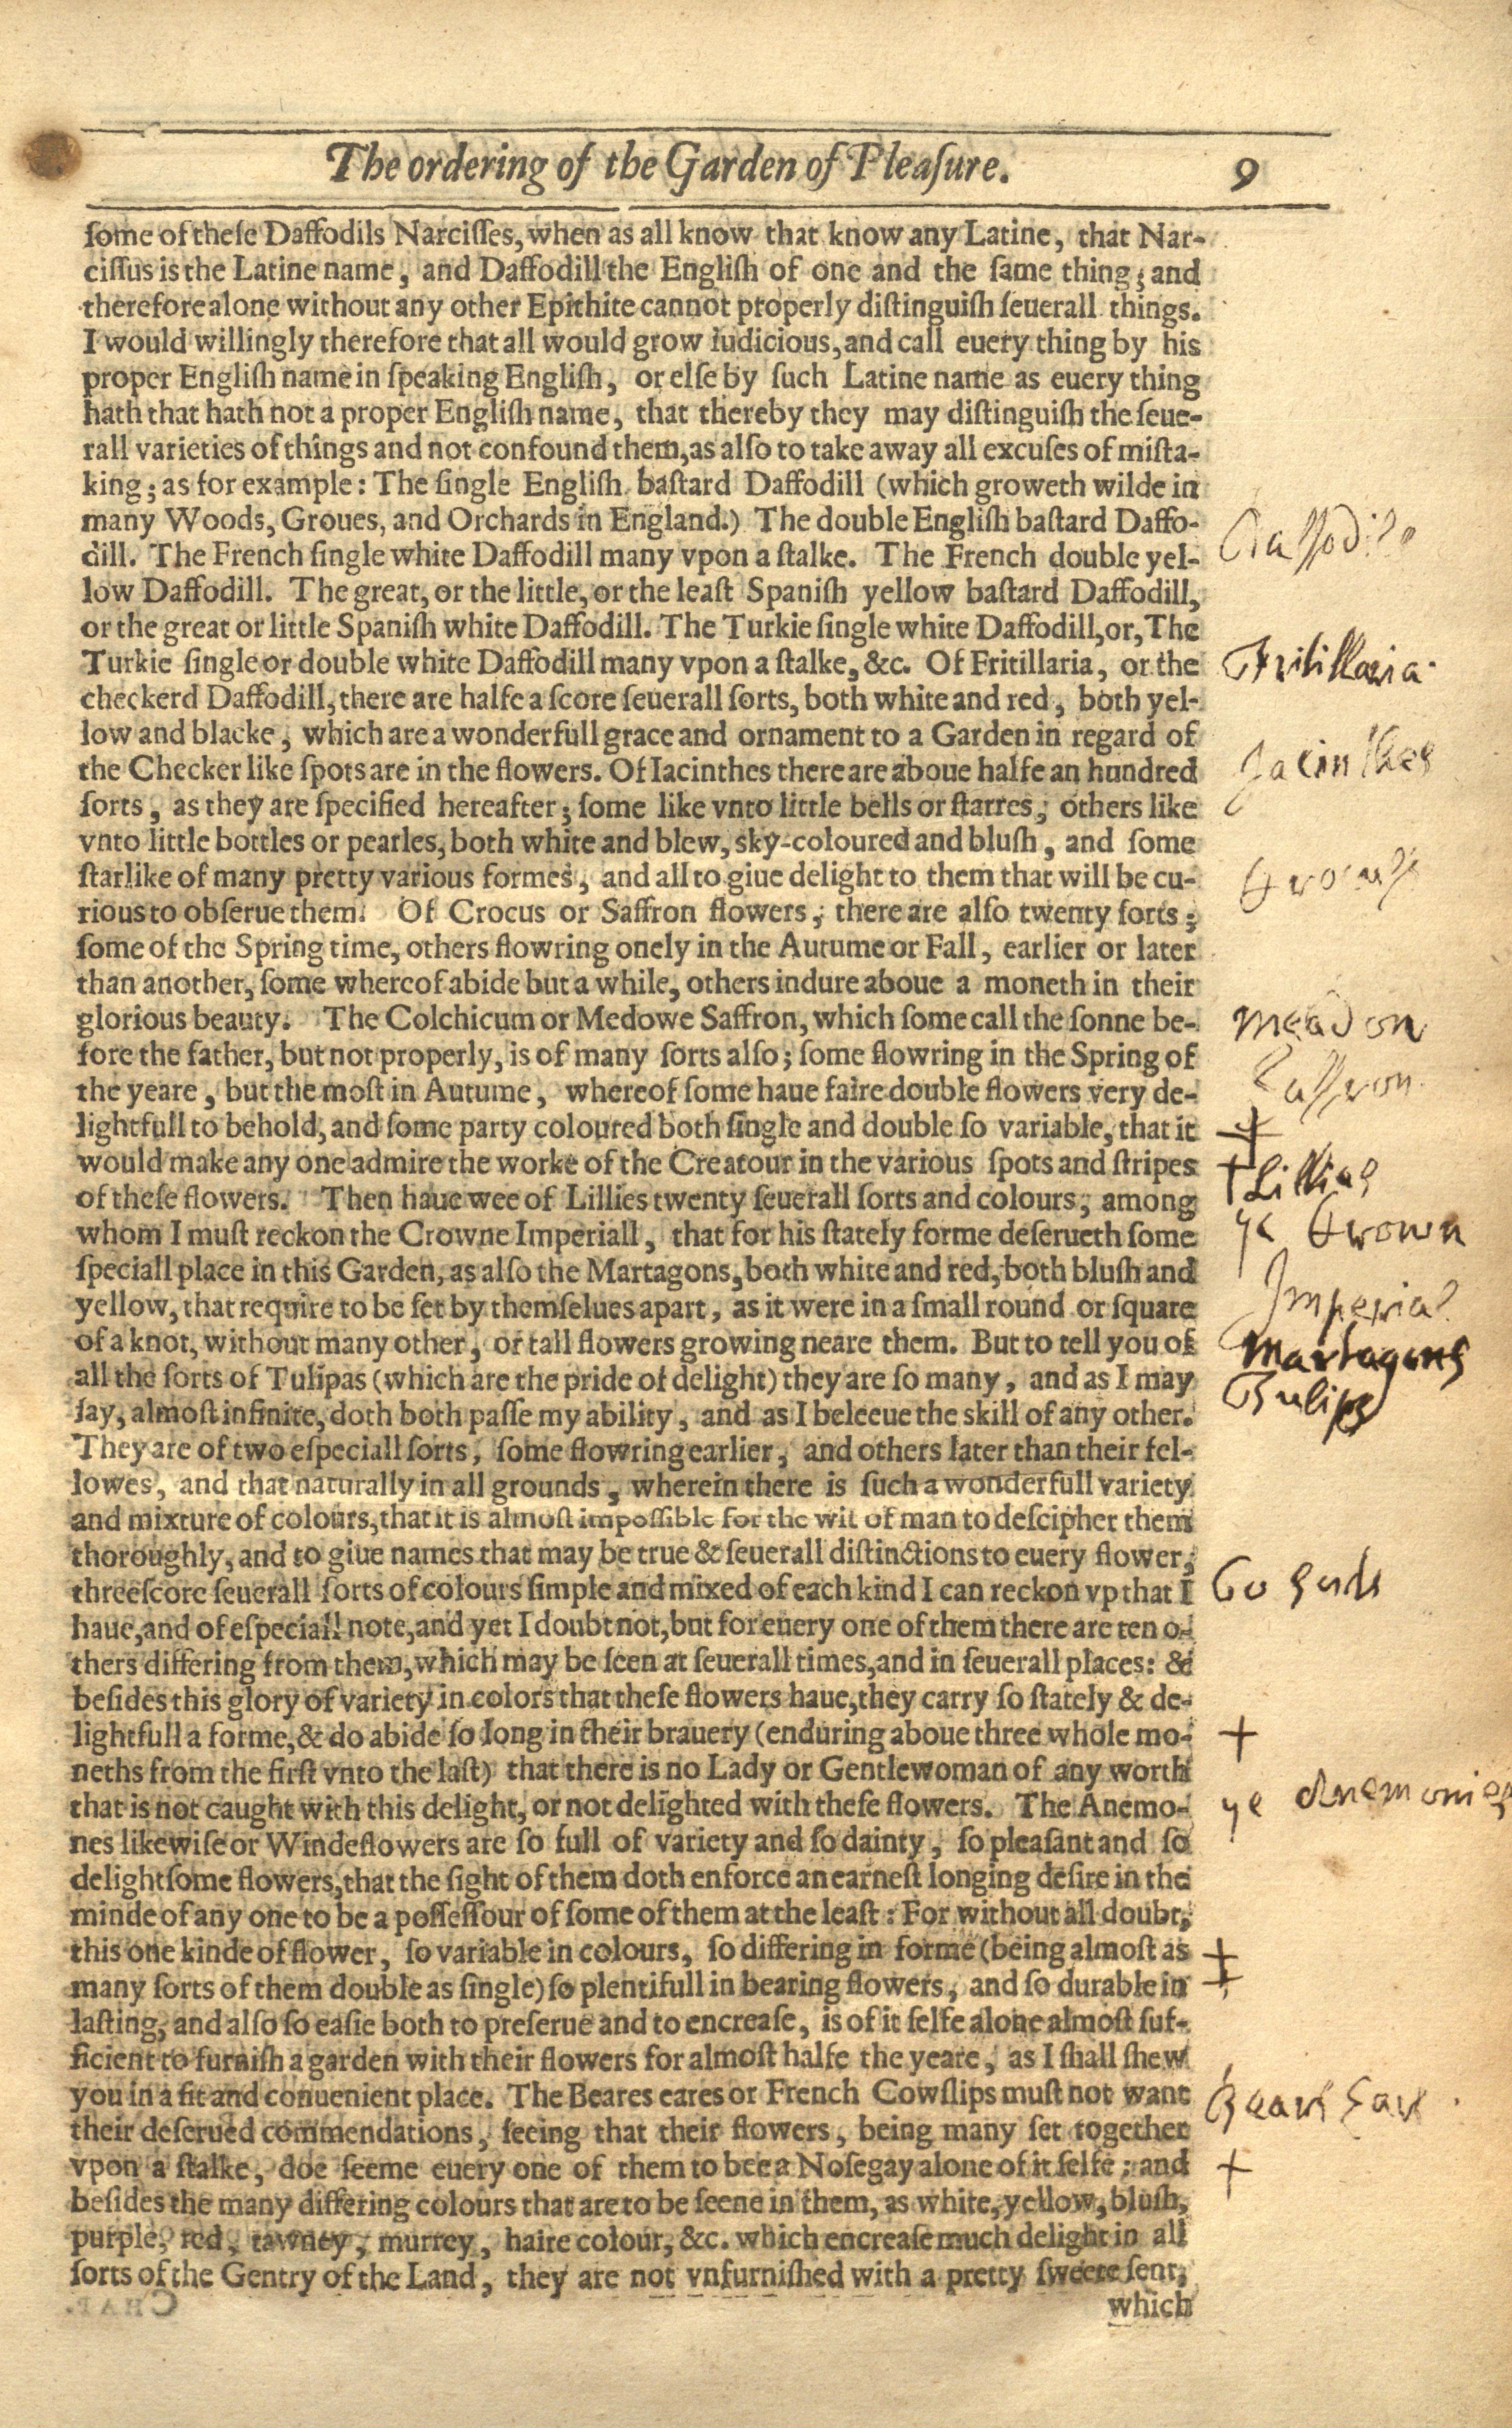 The ordering of the Garden of Pleaſure. 9
ſome of theſe Daffodils Narciſſes, when as all know that know any Latine, that Nar-
ciſſus is the Latine name, and Daffodill the Engliſh of one and the ſame thing; and
therefore alone without any other Epithite cannot properly diſtinguiſh ſeuerall things.
I would willingly therefore that all would grow iudicious, and call euery thing by his
proper Engliſh name in ſpeaking Engliſh, or elſe by ſuch Latine name as euery thing
hath that hath not a proper Engliſh name, that thereby they may diſtinguiſh the ſeue-
rall varieties of things and not confound them, as alſo to take away all excuſes of miſta-
king; as for example: The ſingle Engliſh baſtard Daffodill (which groweth wilde in
many Woods, Groues, and Orchards in England.) The double Engliſh baſtard Daffo-
dill. The French ſingle white Daffodill many vpon a ſtalke. The French double yel-
Daffodils
low Daffodill. The great, or the little, or the leaſt Spaniſh yellow baſtard Daffodill,
or the great or little Spaniſh white Daffodill. The Turkie ſingle white Daffodill, or, The
Turkie ſingle or double white Daffodill many vpon a ſtalke, &c. Of Fritillaria, or the
Fritillaria
checkerd Daffodill, there are halfe a ſcore ſeuerall ſorts, both white and red, both yel-
low and blacke, which are a wonderfull grace and ornament to a Garden in regard of
the Checker like ſpots are in the flowers. Of Iacinthes there are aboue halfe an hundred
Jacinthes
ſorts, as they are ſpecified hereafter; ſome like vnto little bells or ſtarres, others like
vnto little bottles or pearles, both white and blew, sky-coloured and bluſh, and ſome
ſtarlike of many pretty various formes, and all to giue delight to them that will be cu-
Crocus
rious to obſerue them. Of Crocus or Saffron flowers, there are alſo twenty ſorts;
ſome of the Spring time, others flowring onely in the Autume or Fall, earlier or later
than another, ſome whereof abide but a while, others indure aboue a moneth in their
glorious beauty. The Colchicum or Medowe Saffron, which ſome call the ſonne be-
meadow
fore the father, but not properly, is of many ſorts alſo; ſome flowring in the Spring of
the yeare, but the moſt in Autume, whereof ſome haue faire double flowers very de-
Saffron
lightfull to behold, and ſome party coloured both ſingle and double ſo variable, that it
would make any one admire the worke of the Creatour in the various ſpots and ſtripes
of theſe flowers. Then haue wee of Lillies twenty ſeuerall ſorts and colours, among
Lillies
whom I muſt reckon the Crowne Imperiall, that for his ſtately forme deſerueth ſome
ye Crown
ſpeciall place in this Garden, as alſo the Martagons, both white and red, both bluſh and
yellow, that require to be ſet by themſelues apart, as it were in a ſmall round or ſquare
Imperial
of a knot, without many other, or tall flowers growing neare them. But to tell you of
Martagons
all the ſorts of Tulipas (which are the pride of delight) they are ſo many, and as I may
Tulips
ſay, almoſt infinite, doth both paſſe my ability, and as I beleeue the skill of any other.
They are of two eſpeciall ſorts, ſome flowring earlier, and others later than their fel-
lowes, and that naturally in all grounds, wherein there is ſuch a wonderfull variety
and mixture of colours, that it is almoſt impoſſible for the wit of man to deſcipher them
thoroughly, and to giue names that may be true & ſeuerall diſtinctions to euery flower,
threeſcore ſeuerall ſorts of colours ſimple and mixed of each kind I can reckon vp that I
60
haue, and of eſpeciall note, and yet I doubt not, but for euery one of them there are ten o-
thers differing from them, which may be ſeen at ſeuerall times, and in ſeuerall places: &
beſides this glory of variety in colors that theſe flowers haue, they carry ſo ſtately & de-
lightfull a forme, & do abide ſo long in their brauery (enduring aboue three whole mo-
neths from the firſt vnto the laſt) that there is no Lady or Gentlewoman of any worth
that is not caught with this delight, or not delighted with theſe flowers. The Anemo-
ye Anemonies
nes likewiſe or Windeflowers are ſo full of variety and ſo dainty, ſo pleaſant and ſo
delightſome flowers, that the ſight of them doth enforce an earneſt longing deſire in the
minde of any one to be a poſſeſſour of ſome of them at the leaſt: For without all doubt,
this one kinde of flower, ſo variable in colours, ſo differing in forme (being almoſt as
many ſorts of them double as ſingle) ſo plentifull in bearing flowers, and ſo durable in
laſting, and alſo ſo eaſie both to preſerue and to encreaſe, is of it ſelfe alone almoſt ſuf-
ficient to furniſh a garden with their flowers for almoſt halfe the yeare, as I ſhall ſhew
you in a fit and conuenient place. The Beares eares or French Cowſlips muſt not want
Bears Ears
their deſerued commendations, ſeeing that their flowers, being many ſet together
vpon a ſtalke, doe ſeeme euery one of them to bee a Noſegay alone of it ſelfe: and
beſides the many differing colours that are to be ſeene in them, as white, yellow, bluſh,
purple, red, tawney, murrey, haire colour, &c. which encreaſe much delight in all
ſorts of the Gentry of the Land, they are not vnfurniſhed with a pretty ſweete ſent,
which